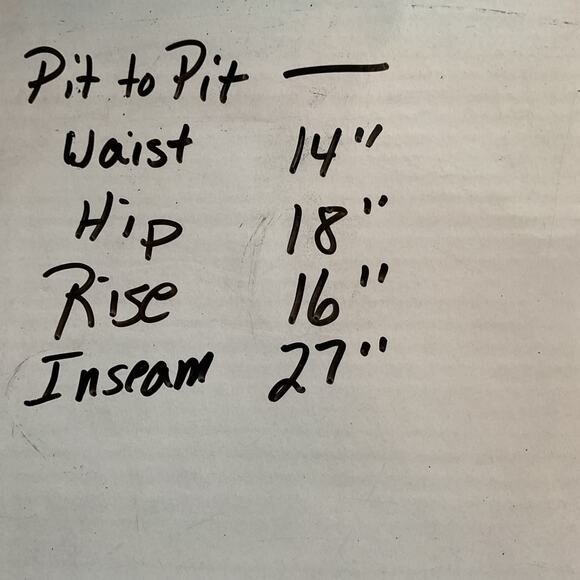 Pit to Pit —
Waist 14"
Hip 18"
Rise 16"
Inseam 27"